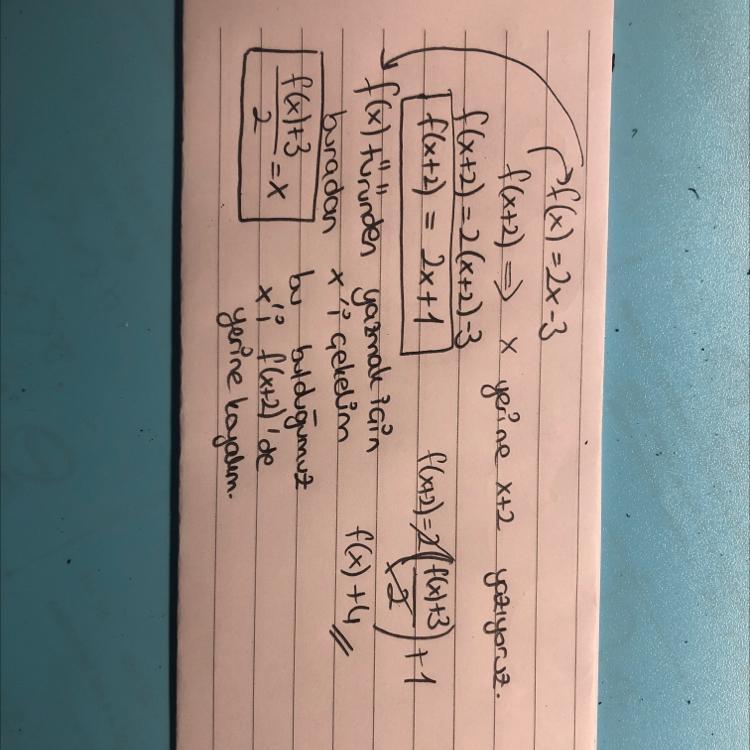 f(x) = 2x-3
f(x+2) => x yerine x+2 yazıyoruz.
f(x+2) = 2(x+2)-3
f(x+2) = 2x+1
f(x) türünden yazmak için
buradan x'i çekelim
f(x)+3/2 = x
bu bulduğumuz
x'i f(x+2)'de
yerine koyalım.
f(x+2) = 2(f(x)+3/2) + 1
f(x)+4 //